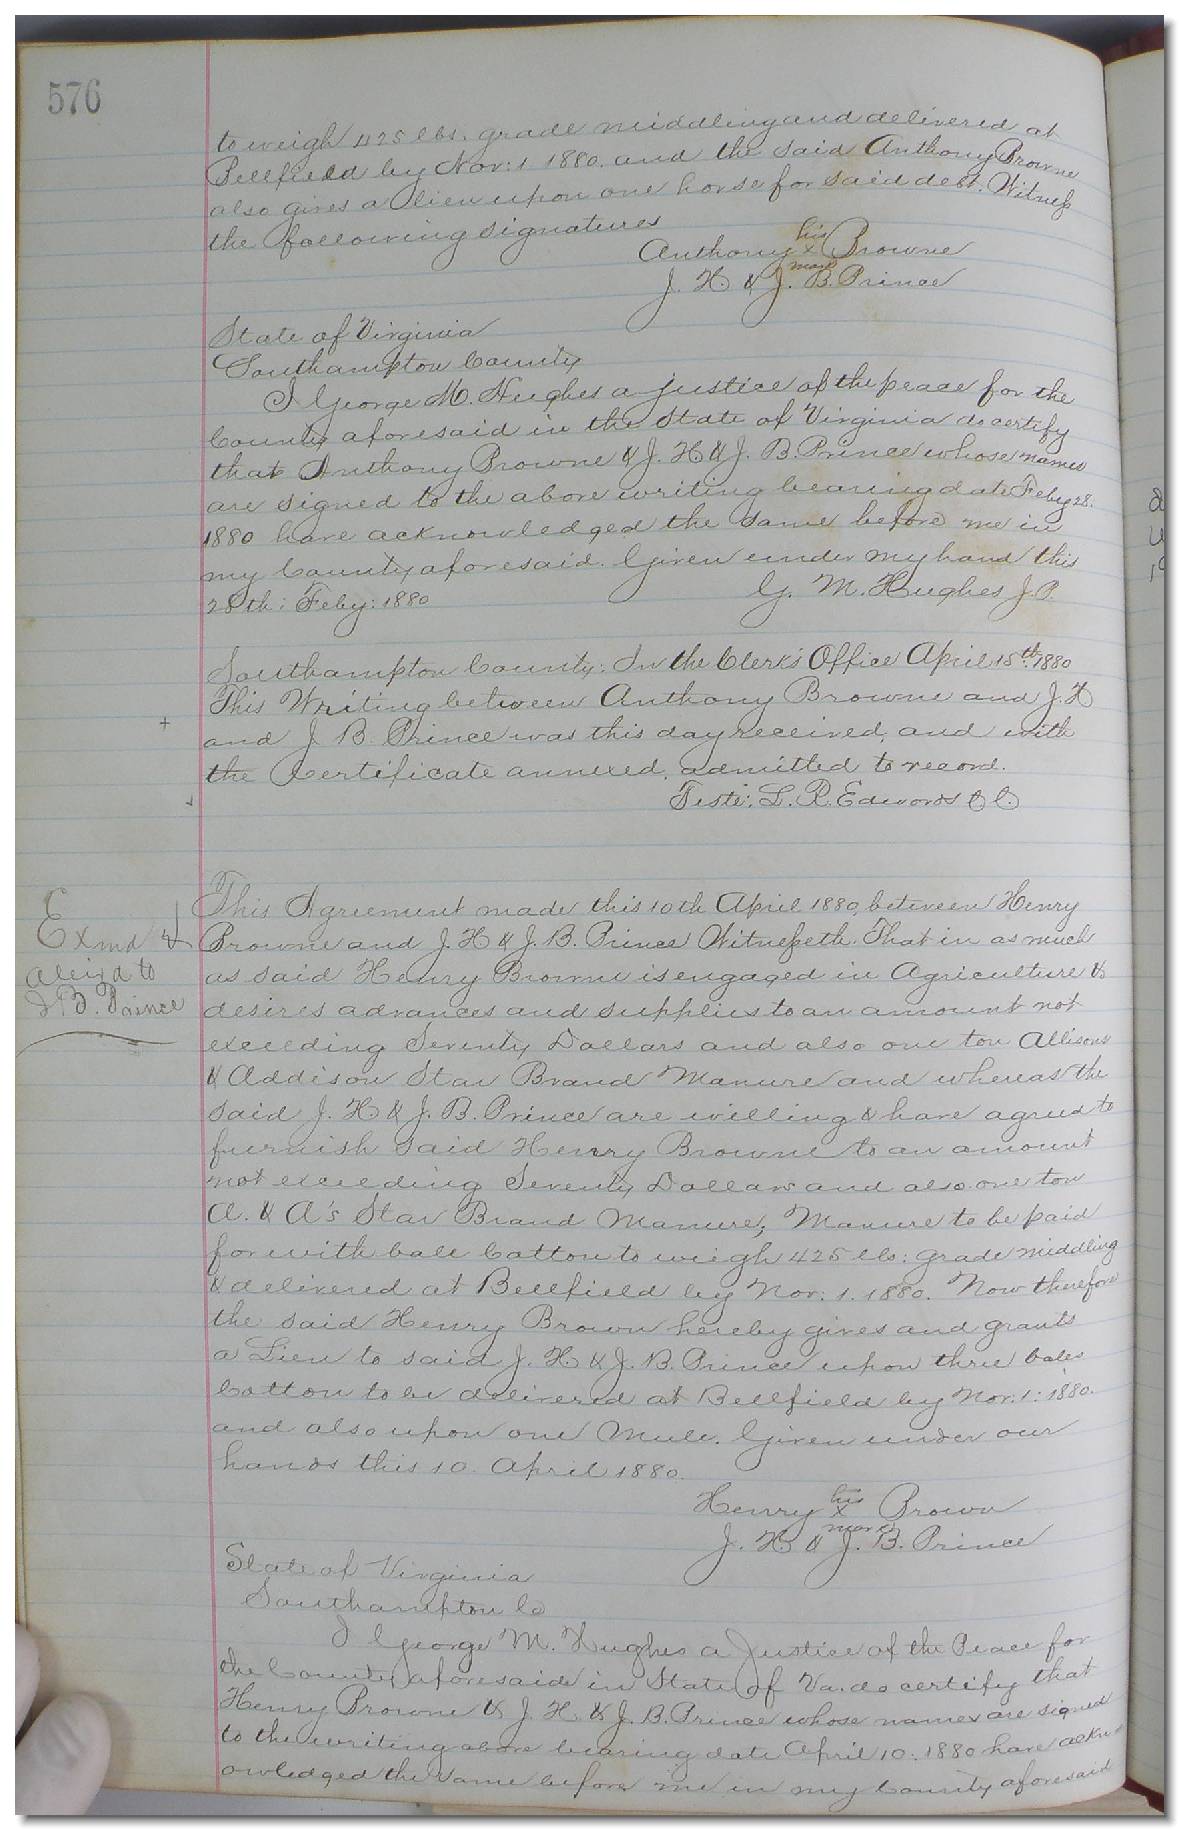 576
to weigh 425 lbs. grade middling and delivered at
Bellfield by Nov: 1 1880. and the said Anthony Browne
also gives a lien upon one horse for said debt. Witness
the following signatures
his
Anthony x Browne
mark
J. H & J. B. Prince
State of Virginia
Southampton County
I George M. Hughes a justice of the peace for the
County aforesaid in the State of Virginia do certify
that Anthony Browne & J. H & J. B. Prince whose names
are signed to the above writing bearing date Feby 28.
1880 have acknowledged the same before me in
my County aforesaid. Given under my hand this
28th: Feby: 1880
G. M. Hughes J.P.
Southampton County: In the Clerk's Office April 15th. 1880
This Writing between Anthony Browne and J. H
+
and J. B. Prince was this day received, and with
the Certificate annexed, admitted to record.
Teste: L. R. Edwards C C.
This Agreement made this 10th April 1880, between Henry
Exmd &
Browne and J. H & J. B. Prince Witnesseth. That in as much
as said Henry Browne is engaged in Agriculture &
to
J. B. Prince
desires advances and supplies to an amount not
exceeding Seventy Dollars and also one ton Allisons
& Addison Star Brand Manure and whereas the
said J. H & J. B. Prince are willing & have agreed to
furnish said Henry Browne to an amount
not exceeding Seventy Dollars and also one ton
A. & A's Star Brand Manure; Manure to be paid
for with bale Cotton to weigh 425 lbs: grade middling
& delivered at Bellfield by Nov: 1. 1880. Now therefore
the said Henry Brown hereby gives and grants
a Lien to said J. H. & J. B. Prince upon three bales
Cotton to be delivered at Bellfield by Nov: 1: 1880.
and also upon one Mule. Given under our
hands this 10 April 1880.
his
Henry x Brown
mark
J. H & J. B. Prince
State of Virginia
Southampton Co
I George M. Hughes a Justice of the Peace for
the County aforesaid in State of Va. do certify that
Henry Browne & J. H. & J. B. Prince whose names are signed
to the writing above bearing date April 10: 1880 have ackn
owledged the same before me in my County aforesaid